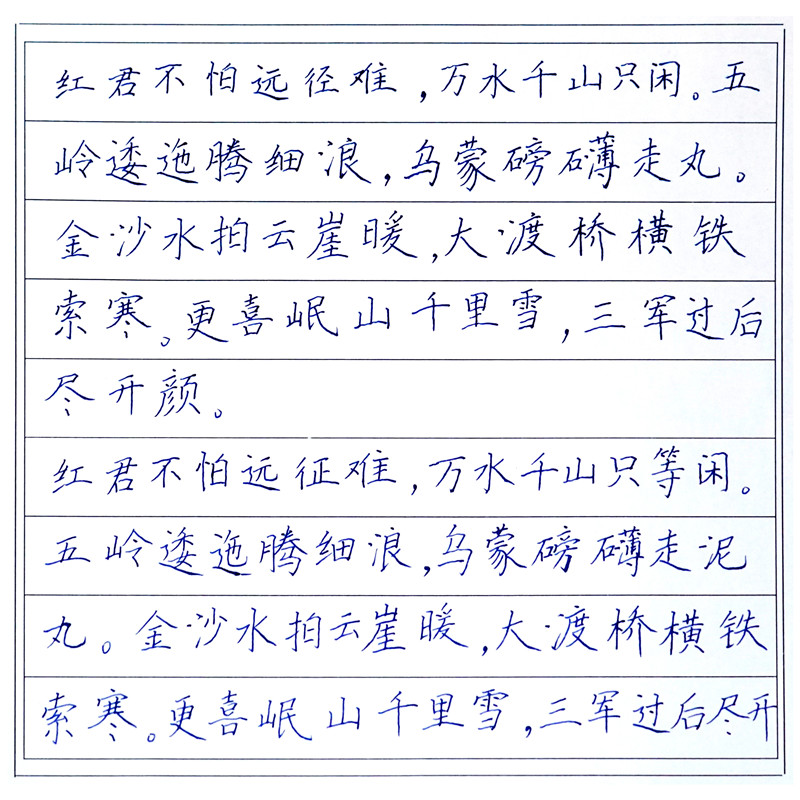 红君不怕远径难，万水千山只闲。五
岭逶迤腾细浪，乌蒙磅礴走丸。
金沙水拍云崖暖，大渡桥横铁
索寒。更喜岷山千里雪，三军过后
尽开颜。
红君不怕远征难，万水千山只等闲。
五岭逶迤腾细浪，乌蒙磅礴走泥
丸。金沙水拍云崖暖，大渡桥横铁
索寒。更喜岷山千里雪，三军过后尽开